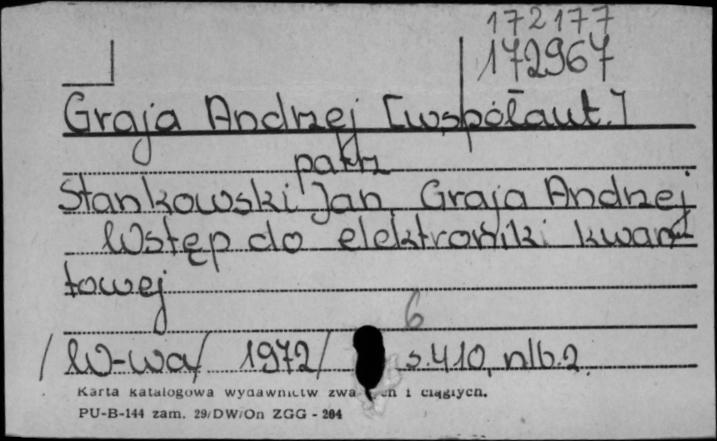 172177
172967
Graja Andrzej [współaut.]
patrz
Stankowski Jan Graja Andrzej
Wstęp do elektroniki kwan
towej
6
/W-wa/ 1972/ s.410, nlb.2.
Karta katalogowa wydawnictw i ciągłych.
PU-B-144 zam. 29/DW/On ZGG - 204